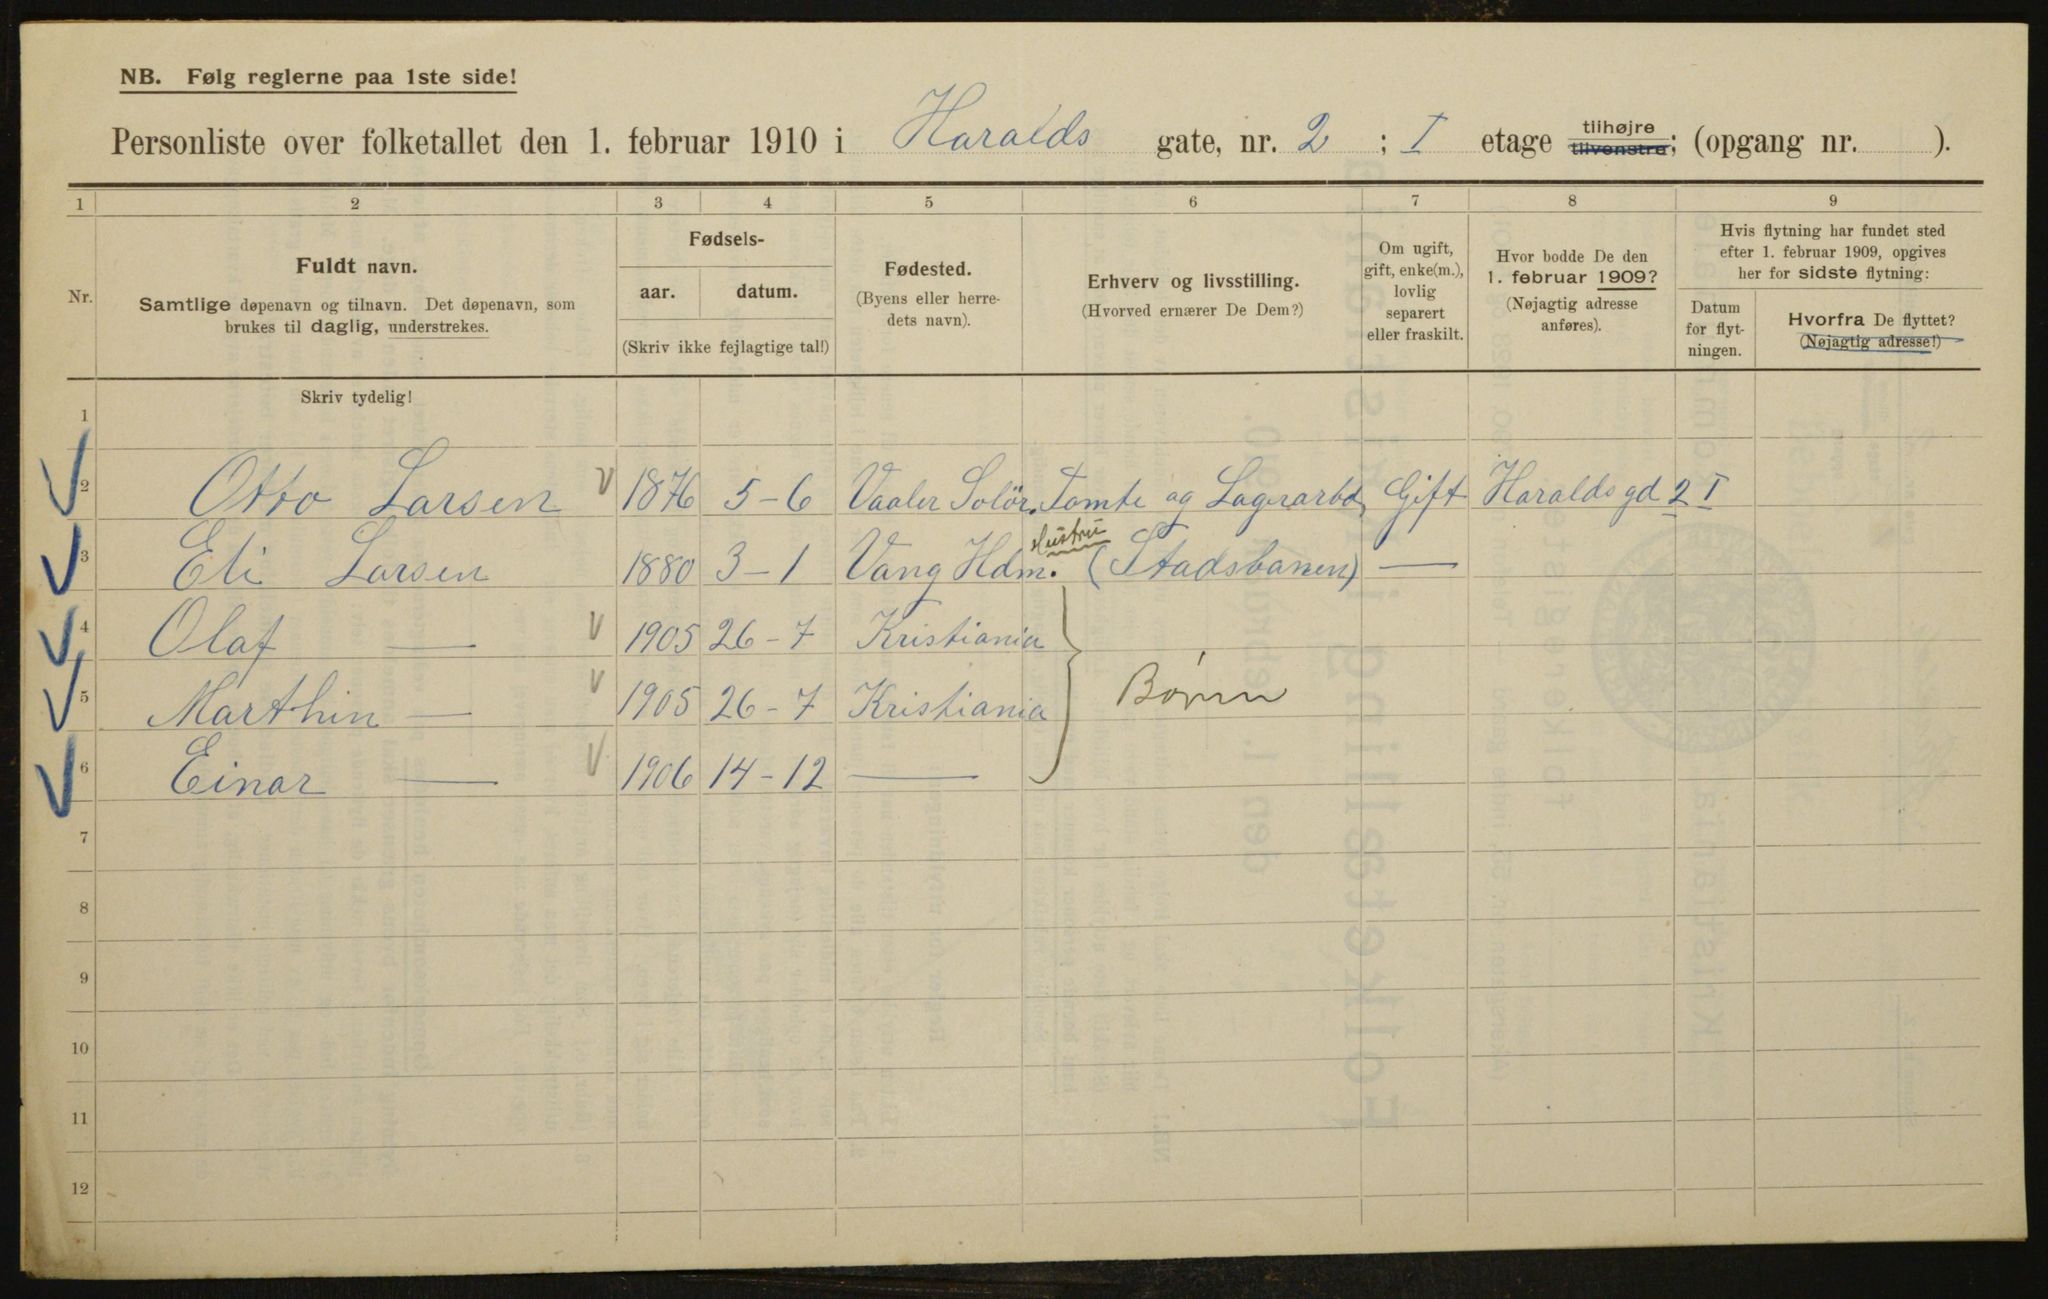 NB. Følg reglerne paa 1ste side!
Personliste over folketallet den 1. februar 1910 i Haralds gate, nr. 2 ; I etage tilhøjre tilvenstre; (opgang nr. ).
1 2 3 4 5 6 7 8 9
Nr.
Fuldt navn.
Samtlige døpenavn og tilnavn. Det døpenavn, som
brukes til daglig, understrekes.
Fødsels-
aar. datum.
(Skriv ikke fejlagtige tal!)
Fødested.
(Byens eller herre-
dets navn).
Erhverv og livsstilling.
(Hvorved ernærer De Dem?)
Om ugift,
gift, enke(m.),
lovlig
separert
eller fraskilt.
Hvor bodde De den
1. februar 1909?
(Nøjagtig adresse
anføres).
Hvis flytning har fundet sted
efter 1. februar 1909, opgives
her for sidste flytning:
Datum
for flyt-
ningen.
Hvorfra De flyttet?
(Nøjagtig adresse!)
Skriv tydelig!
1
2 Otto Larsen 1876 5-6 Vaaler Solör. Tomte og Lagerarbd. Gift Haralds gd 2 I
3 Eli Larsen 1880 3-1 Vang Hdm. Hustru (Stadsbanen) —
4 Olaf — 1905 26-7 Kristiania
5 Marthin — 1905 26-7 Kristiania Børn
6 Einar — 1906 14-12 —
7
8
9
10
11
12